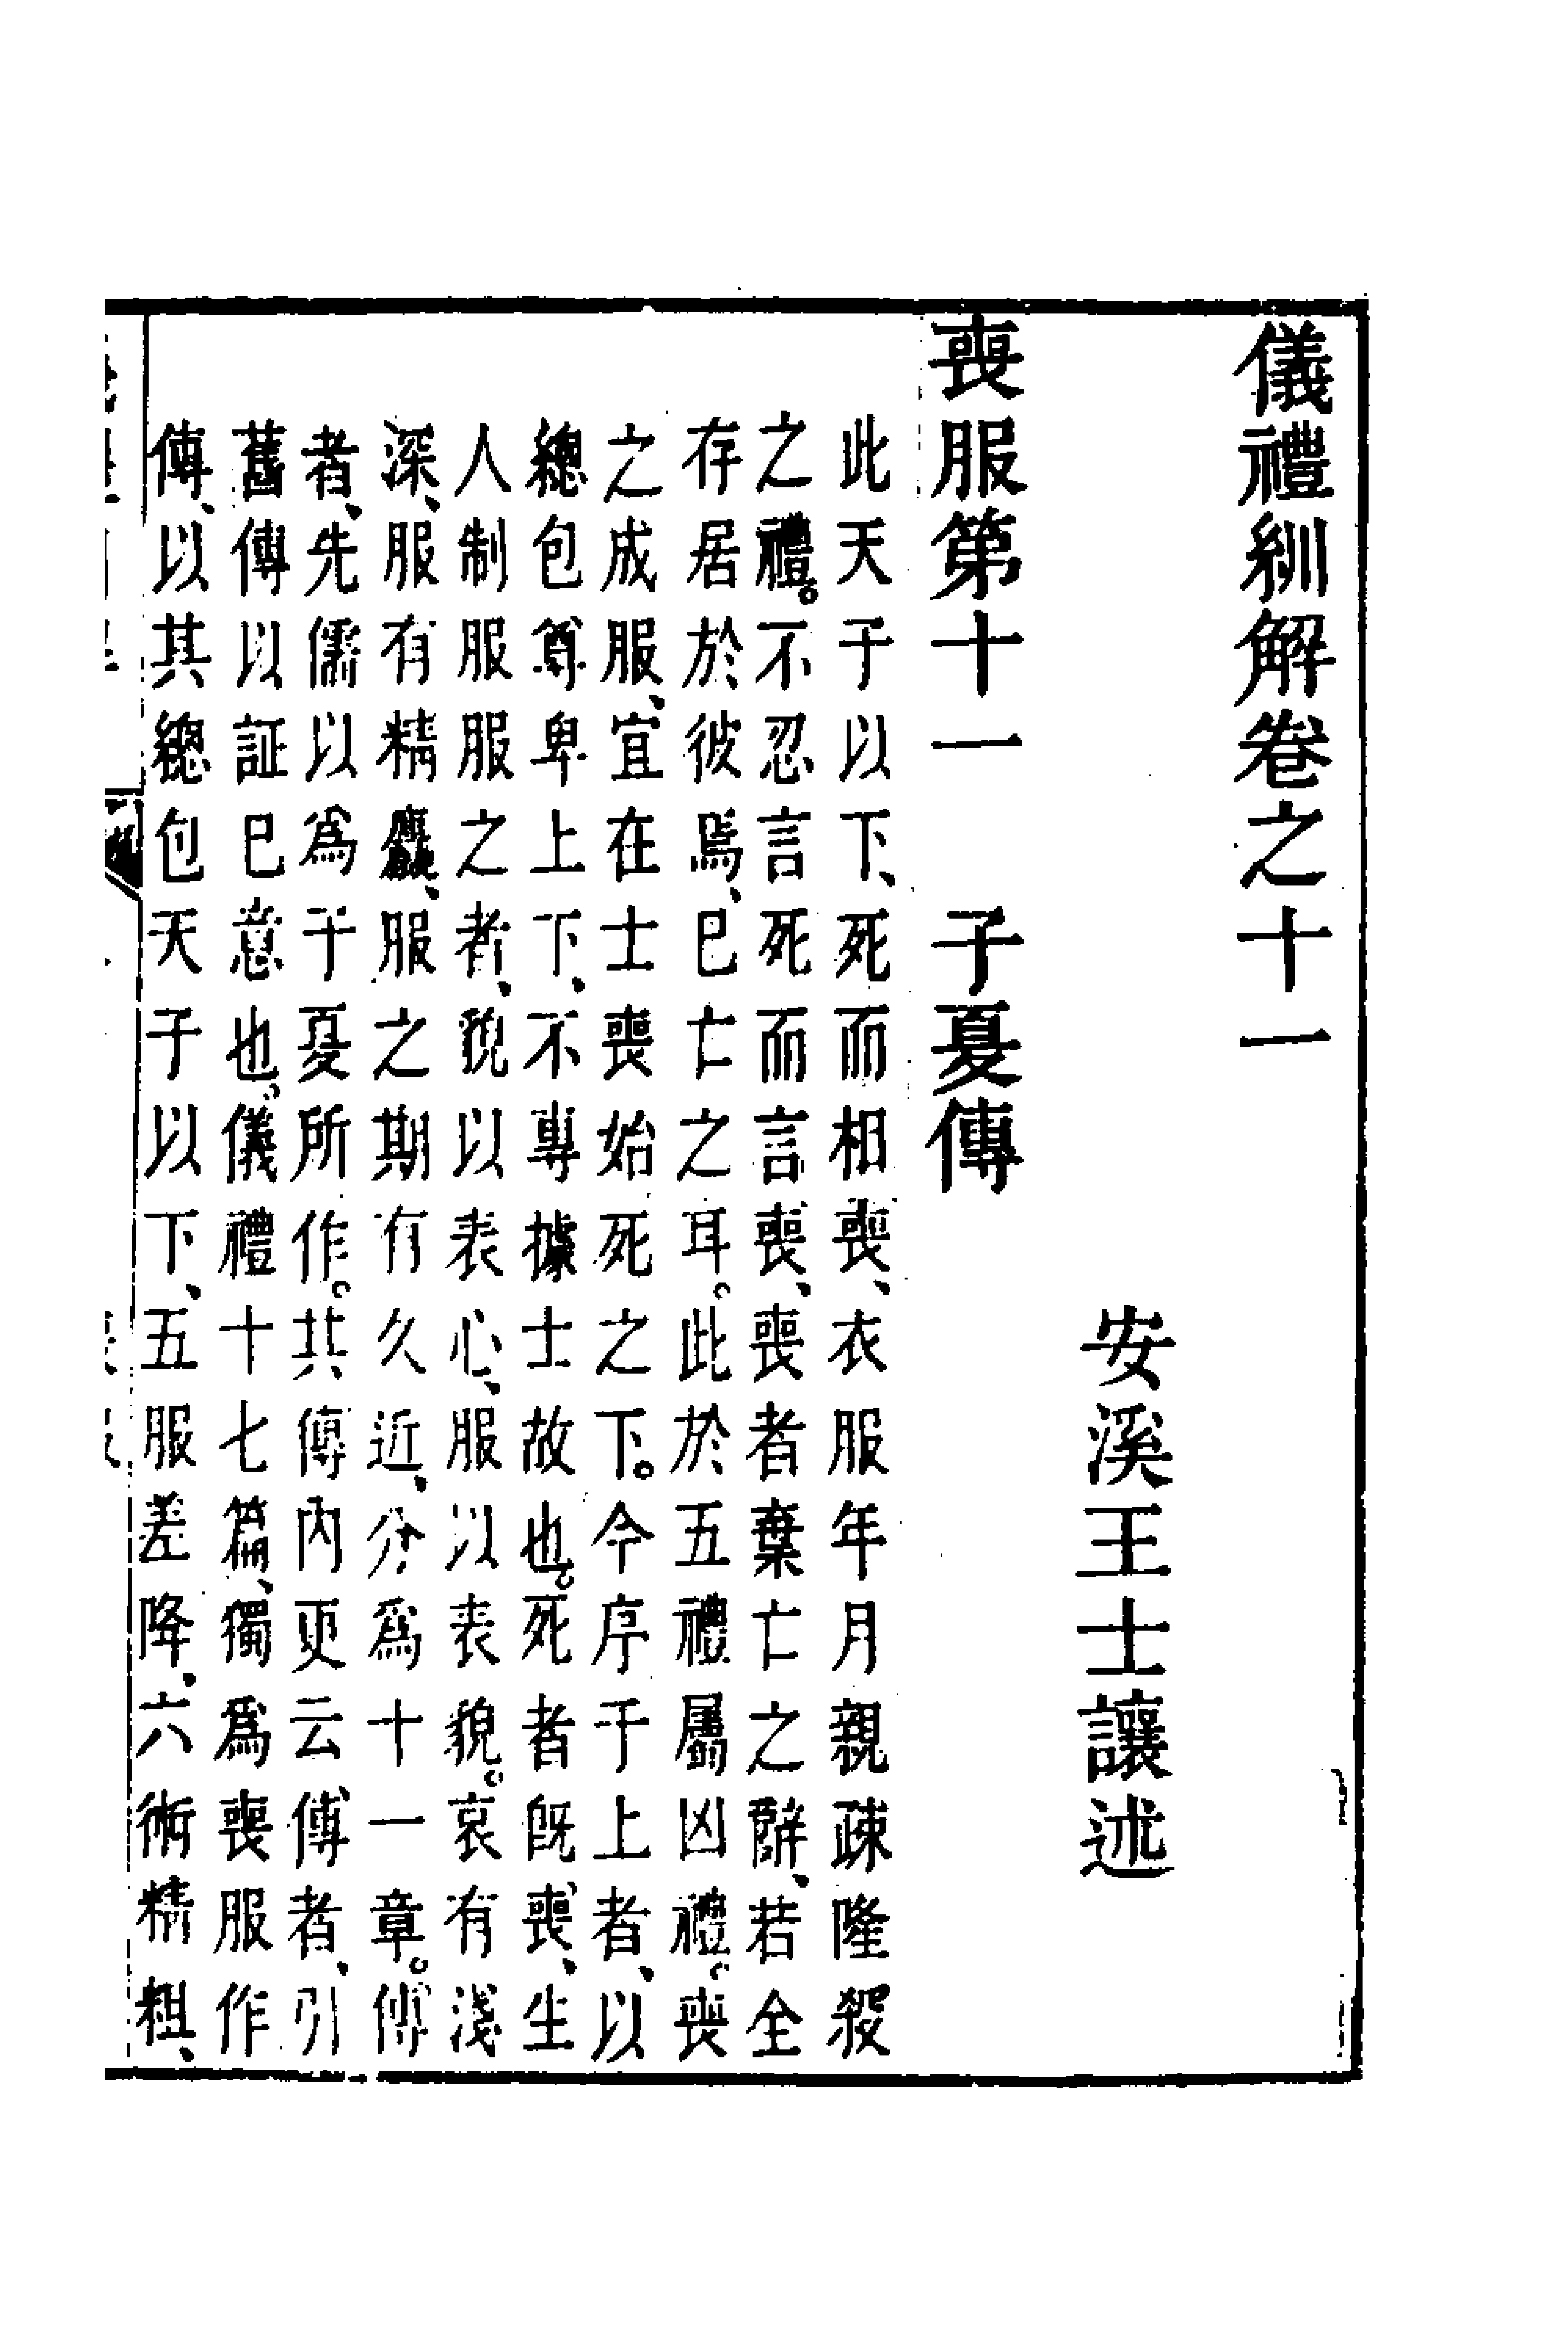 儀禮紃解卷之十一
安溪王士讓述
喪服第十一　子夏傳
此天子以下、死而相喪、衣服年月親疎隆殺
之禮。不忍言死而言喪、喪者棄亡之辭、若全
存居於彼焉、已亡之耳。此於五禮屬凶禮。喪
之成服、宜在士喪始死之下。今序于上者、以
總包尊卑上下、不專據士故也。死者旣喪、生
人制服服之者、貌以表心、服以表貌。哀有淺
深、服有精麤、服之期有久近、分爲十一章。傳
者、先儒以爲子夏所作。共傳內更云傳者、引
舊傳以証已意也。儀禮十七篇、獨爲喪服作
傳、以其總包天子以下、五服差降、六術精粗、